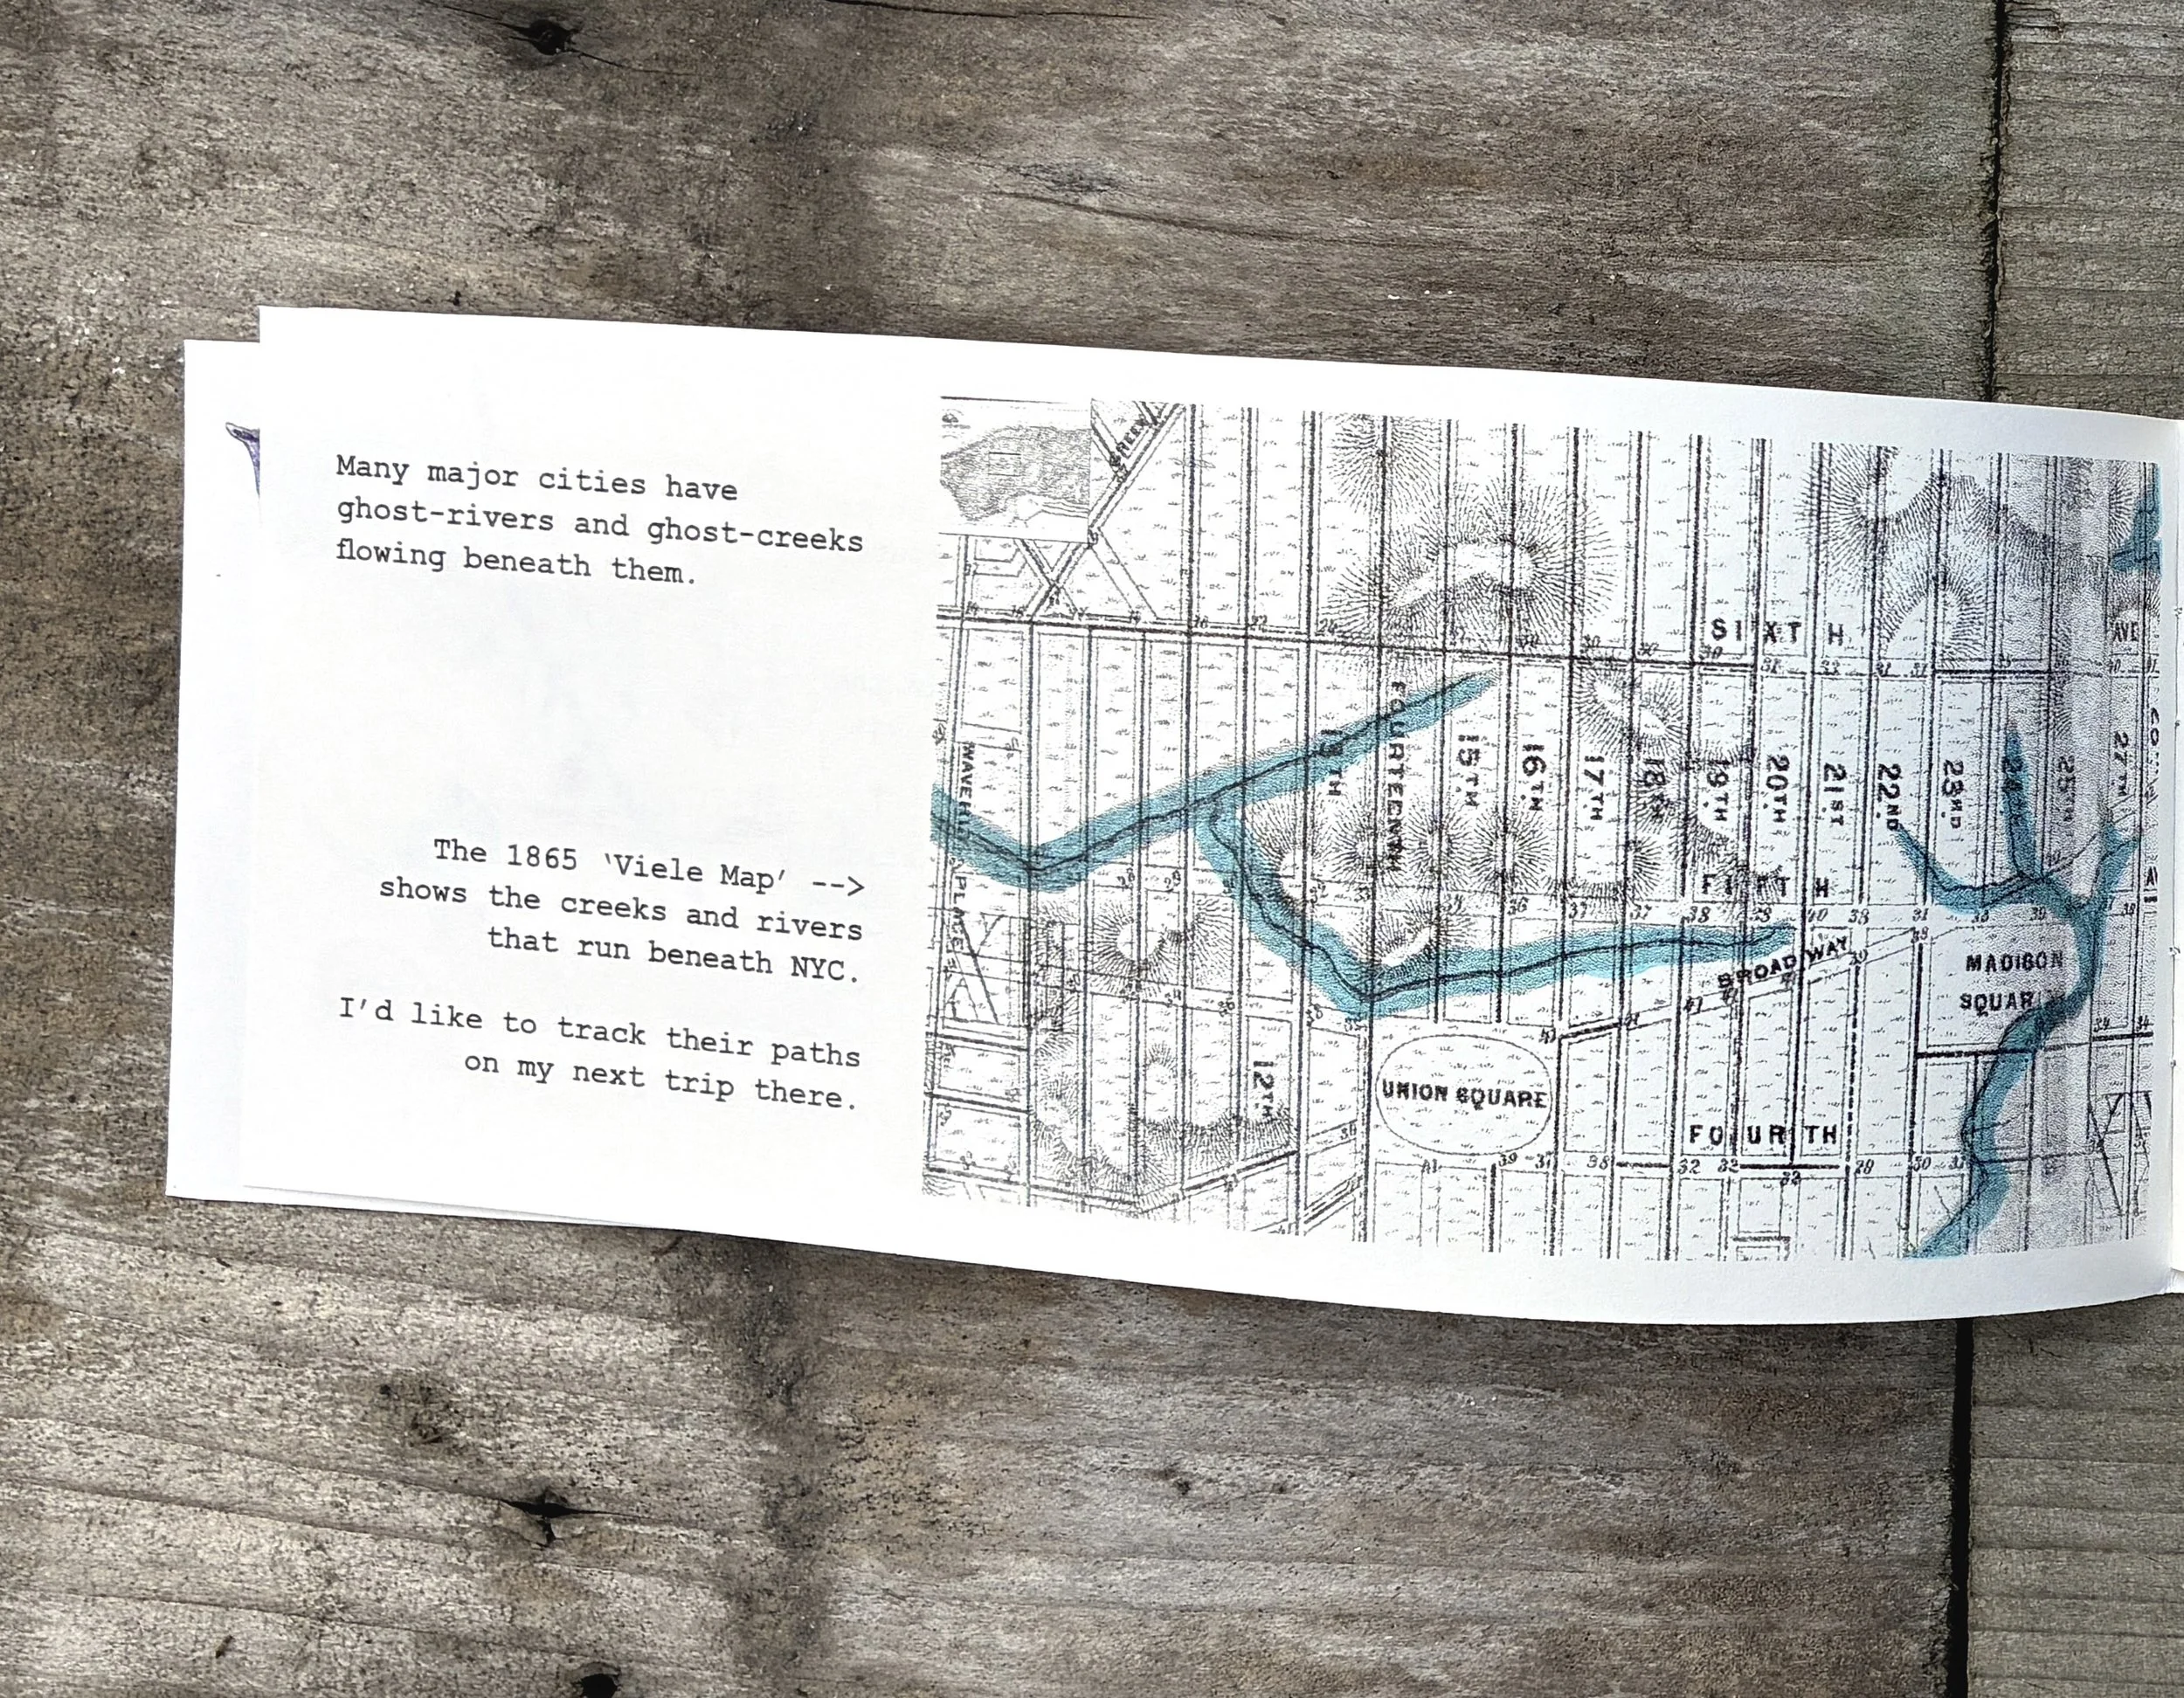 Many major cities have
ghost-rivers and ghost-creeks
flowing beneath them.
The 1865 'Viele Map' -->
shows the creeks and rivers
that run beneath NYC.
I'd like to track their paths
on my next trip there.
SIXTH
AVE
FOURTEENTH
15TH
16TH
17TH
18TH
19TH
20TH
21ST
22ND
23RD
27TH
PLACE
FIFTH
BROADWAY
MADISON
SQUAR
12TH
UNION SQUARE
FOURTH